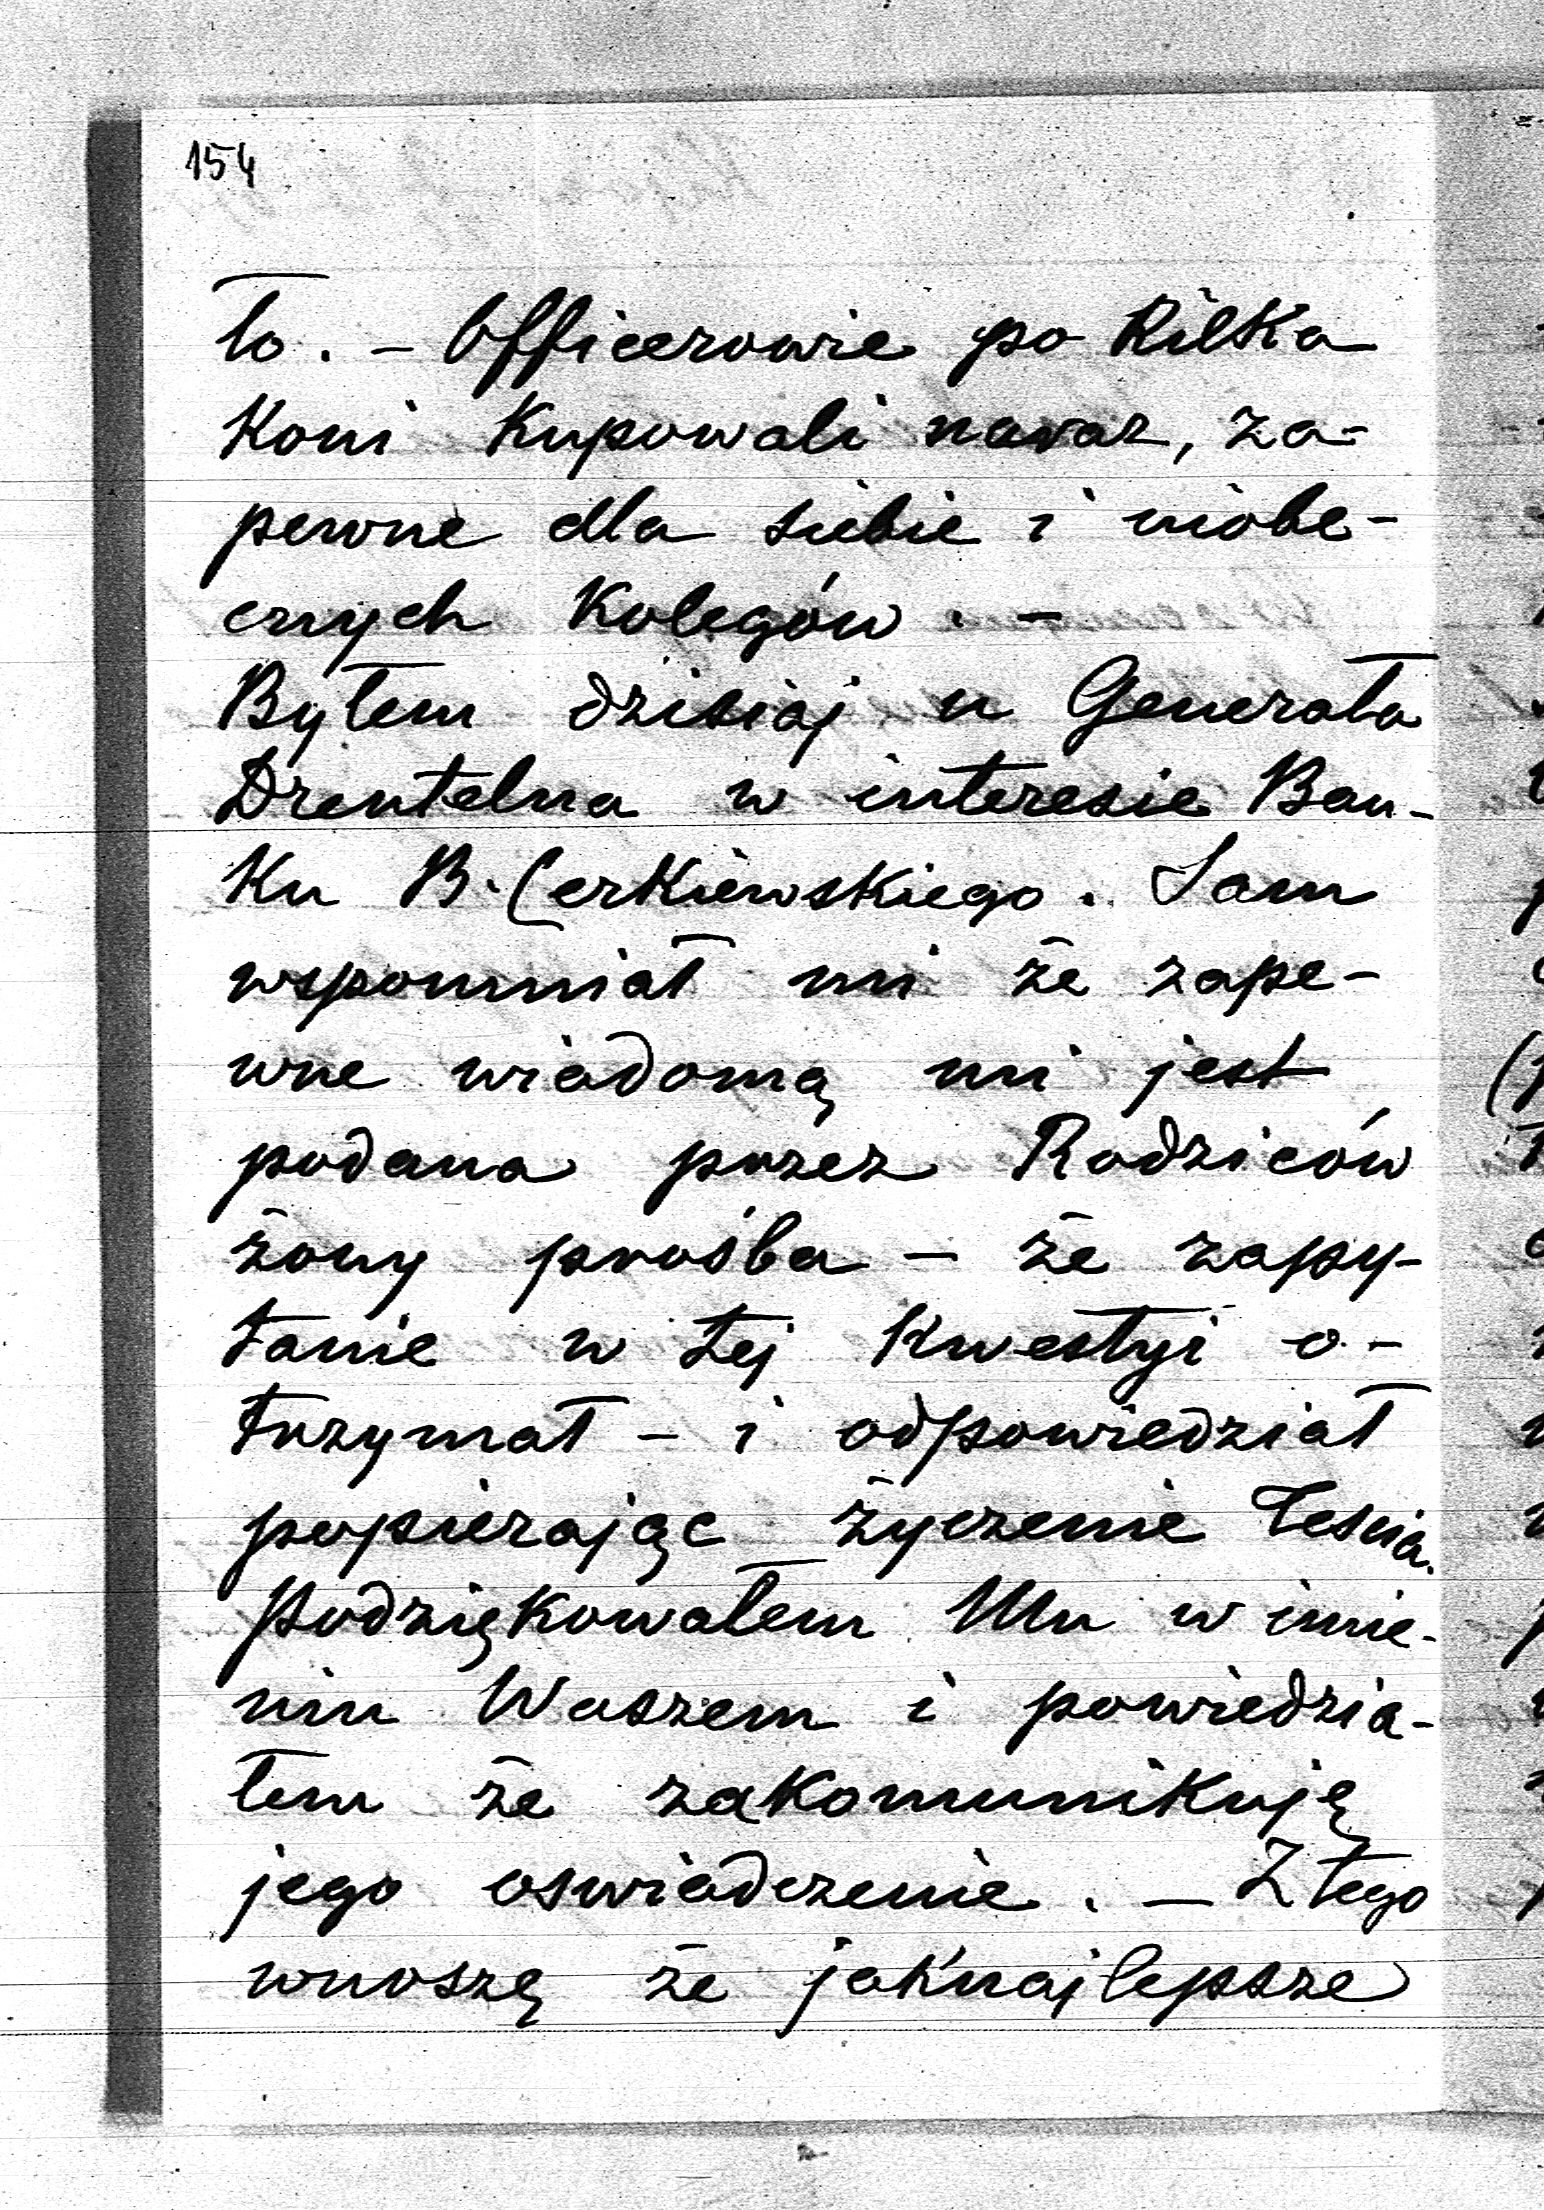 154
to. – Officerowie po kilka
koni kupowali naraz, za-
pewne dla siebie i niobe-
cnych kolegów. –
Byłem dzisiaj u Generała
Drentelna w interesie Ban-
ku B. Cerkiewskiego. Sam
wspomniał mi że zape-
wne wiadomą mi jest
podana przez Rodziców
żony prośba – że zapy-
tanie w tej kwestyi o-
trzymał – i odpowiedział
popierając życzenie Teścia.
Podziękowałem Mu w imie-
niu Waszem i powiedzia-
łem że zakomunikuję
jego oswiadczenie. – Z tego
wnoszę że jaknajlepsze